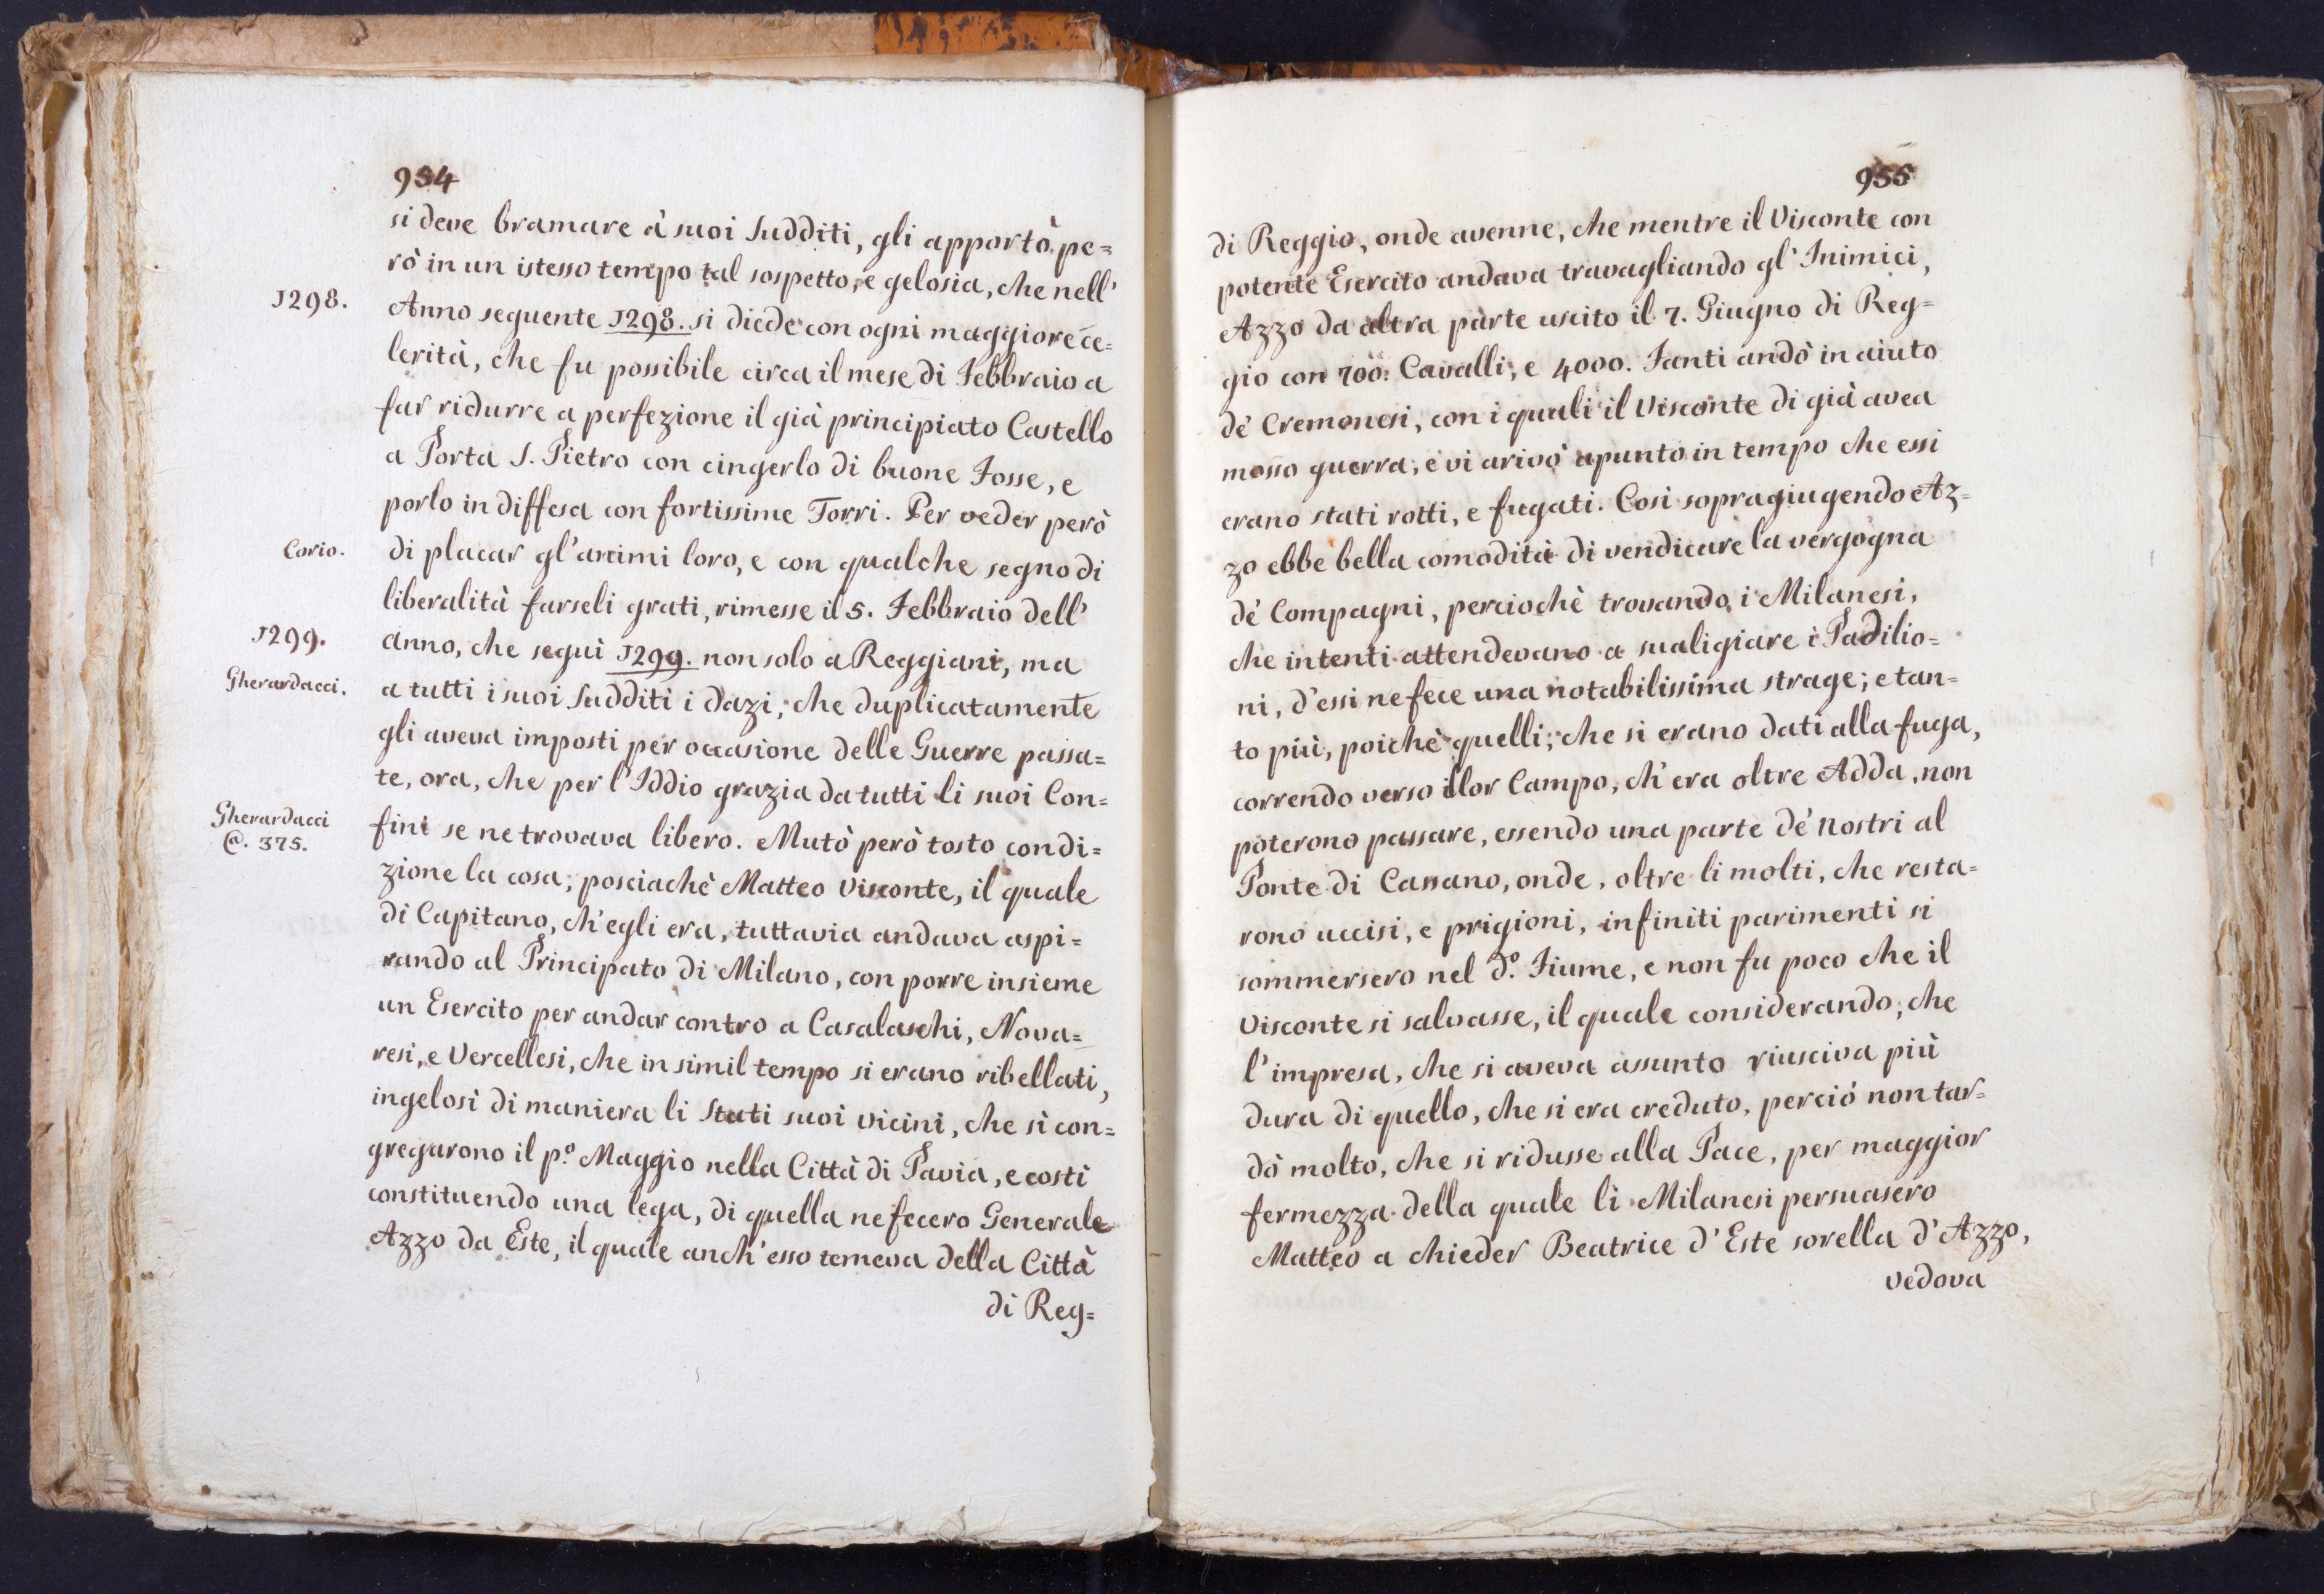 954
si deve bramare à suoi Sudditi, gli apportò pe=
rò in un istesso tempo tal sospetto, e gelosia, che nell'
1298.
Anno seguente 1298. si diede con ogni maggiore ce=
lerità, che fu possibile circa il mese di Febbraio a
far ridurre a perfezione il già principiato Castello
a Porta S. Pietro con cingerlo di buone Fosse, e
porlo in diffesa con fortissime Torri. Per veder però
Corio.
di placar gl'animi loro, e con qualche segno di
liberalità farseli grati, rimesse il 5. Febbraio dell'
1299.
anno, che seguì 1299. non solo a Reggiani, ma
Gherardacci.
a tutti i suoi Sudditi i dazi, che duplicatamente
gli aveva imposti per occasione delle Guerre passa=
te, ora, che per l'Iddio grazia da tutti li suoi Con=
Gherardacci
@. 375.
fini se ne trovava libero. Mutò però tosto condi=
zione la cosa, posciachè Matteo Visconte, il quale
di Capitano, ch'egli era, tuttavia andava aspi=
rando al Principato di Milano, con porre insieme
un Esercito per andar contro a Casalaschi, Nova=
resi, e Vercellesi, che in simil tempo si erano ribellati,
ingelosì di maniera li Stati suoi vicini, che si con=
gregarono il p.º Maggio nella Città di Pavia, e costì
constituendo una lega, di quella ne fecero Generale
Azzo da Este, il quale anch'esso temeva della Città
di Reg=
955
di Reggio, onde avenne, che mentre il Visconte con
potente Esercito andava travagliando gl'Inimici,
Azzo da altra parte uscito il 7. Giugno di Reg=
gio con 700. Cavalli, e 4000. Fanti andò in aiuto
de' Cremonesi, con i quali il Visconte di già avea
mosso guerra, e vi arivò apunto in tempo che essi
erano stati rotti, e fugati. Così sopragiugendo Az=
zo ebbe bella comodità di vendicare la vergogna
de' Compagni, perciochè trovando i Milanesi,
che intenti attendevano a svaligiare i Padilio=
ni, d'essi ne fece una notabilissima strage; e tan=
to più, poichè quelli, che si erano dati alla fuga,
correndo verso il lor Campo, ch'era oltre Adda, non
poterono passare, essendo una parte de' Nostri al
Ponte di Cassano, onde, oltre li molti, che resta=
rono uccisi, e prigioni, infiniti parimenti si
sommersero nel d.º Fiume, e non fu poco che il
Visconte si salvasse, il quale considerando, che
l'impresa, che si aveva assunto riusciva più
dura di quello, che si era creduto, perciò non tar=
dò molto, che si ridusse alla Pace, per maggior
fermezza della quale li Milanesi persuasero
Matteo a chieder Beatrice d'Este sorella d'Azzo,
vedova